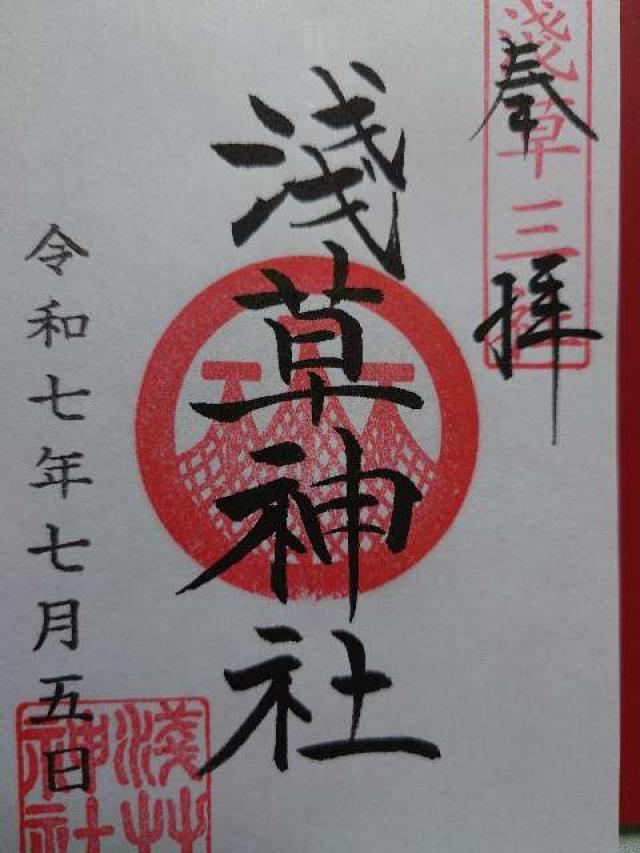 奉拝
淺草三社
淺草神社
令和七年七月五日
淺草神社